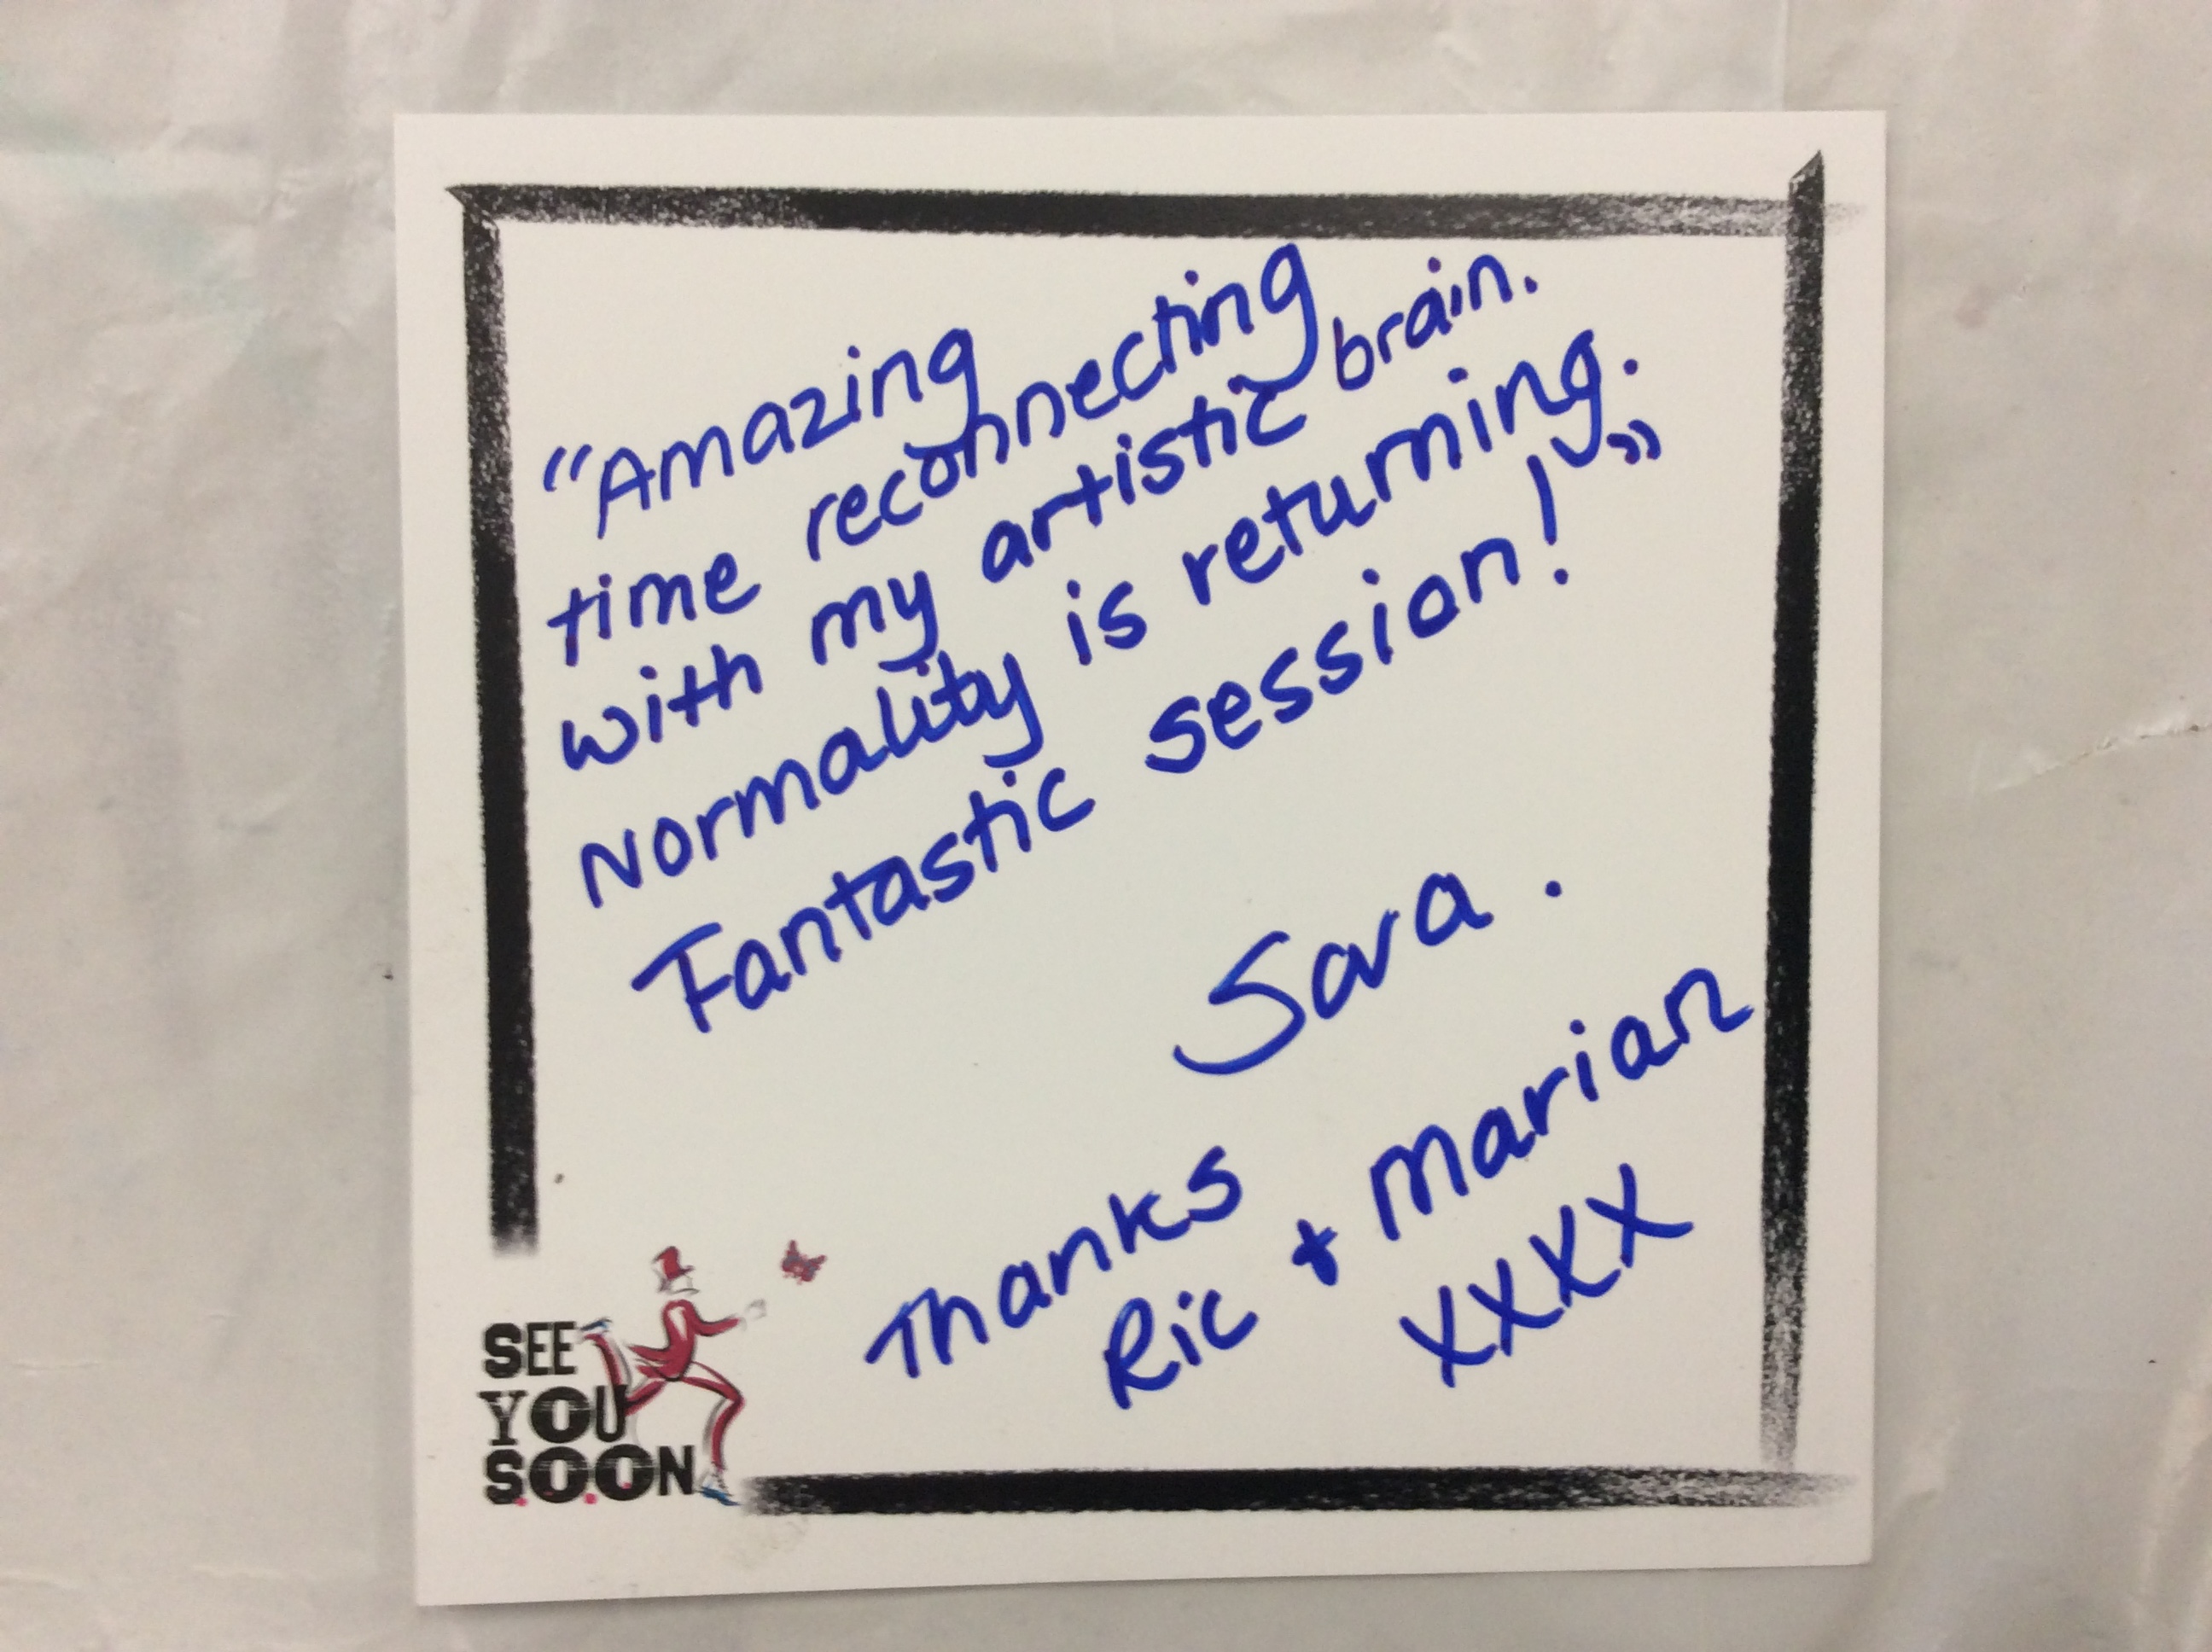 "Amazing
time reconnecting
with my artistic brain.
Normality is returning.
Fantastic session!"
Sara.
Thanks
Ric + Marian
xxxx
SEE
YOU
S.O.O.N